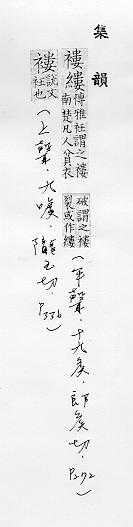 集韻
褸縷博雅衽謂之褸南楚凡人貧衣破謂之褸裂或作縷(平聲.十九矦.郎矦切.P272)
褸說文衽也(上聲.九噳.隴主切.P336)